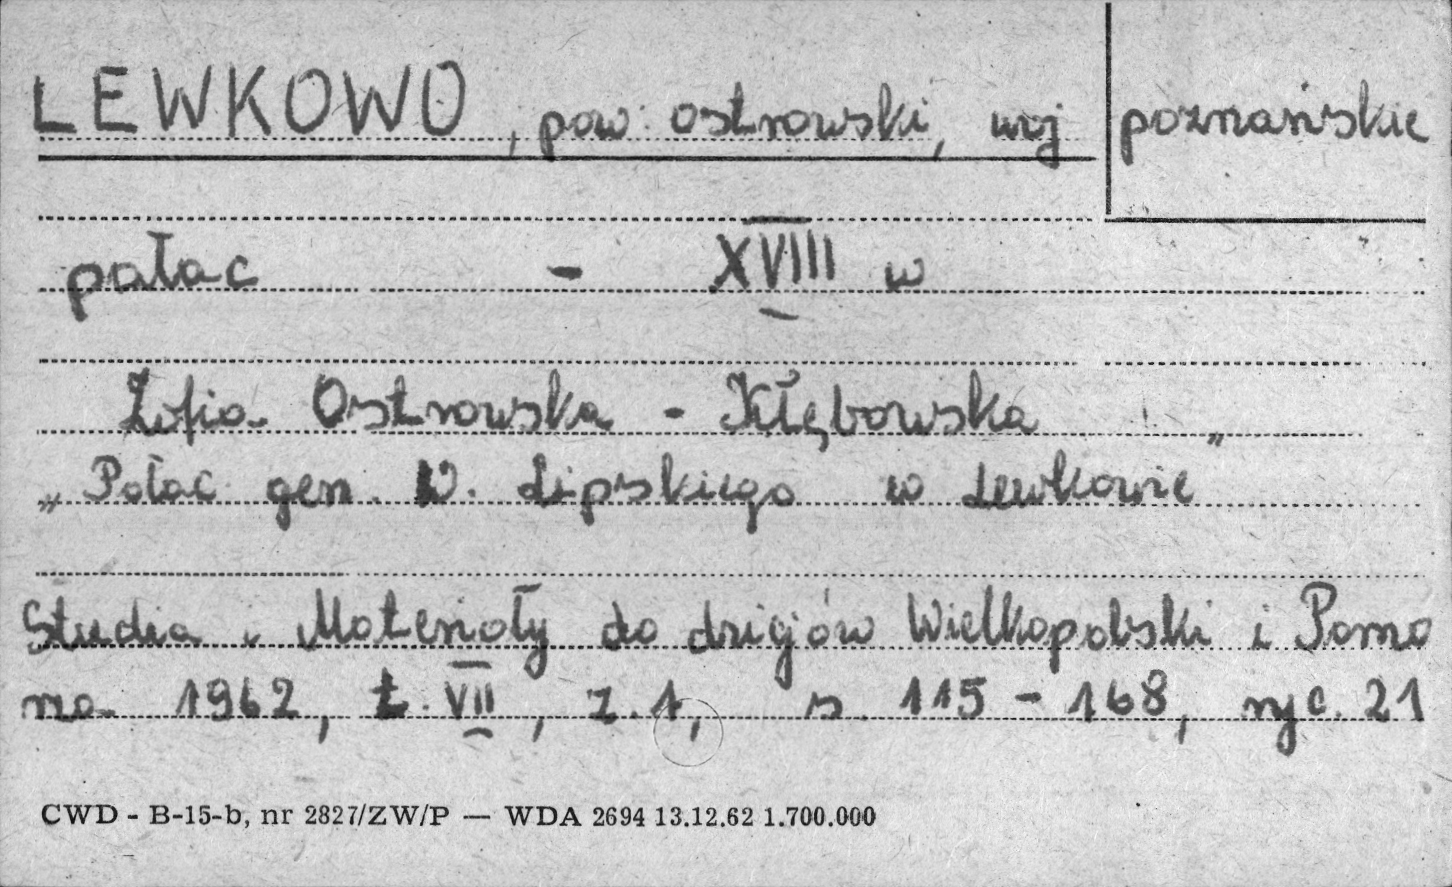 LEWKOWO, pow. ostrowski, woj poznańskie
pałac - XVIII w
Zofia Ostrowska - Kłębowska
„Pałac gen. W. Lipskiego w Lewkowie”
Studia i Materiały do dziejów Wielkopolski i Pomo
rza 1962, t. VII, z. 1, s. 115 - 168, ryc. 21
CWD - B-15-b, nr 2827/ZW/P — WDA 2694 13.12.62 1.700.000